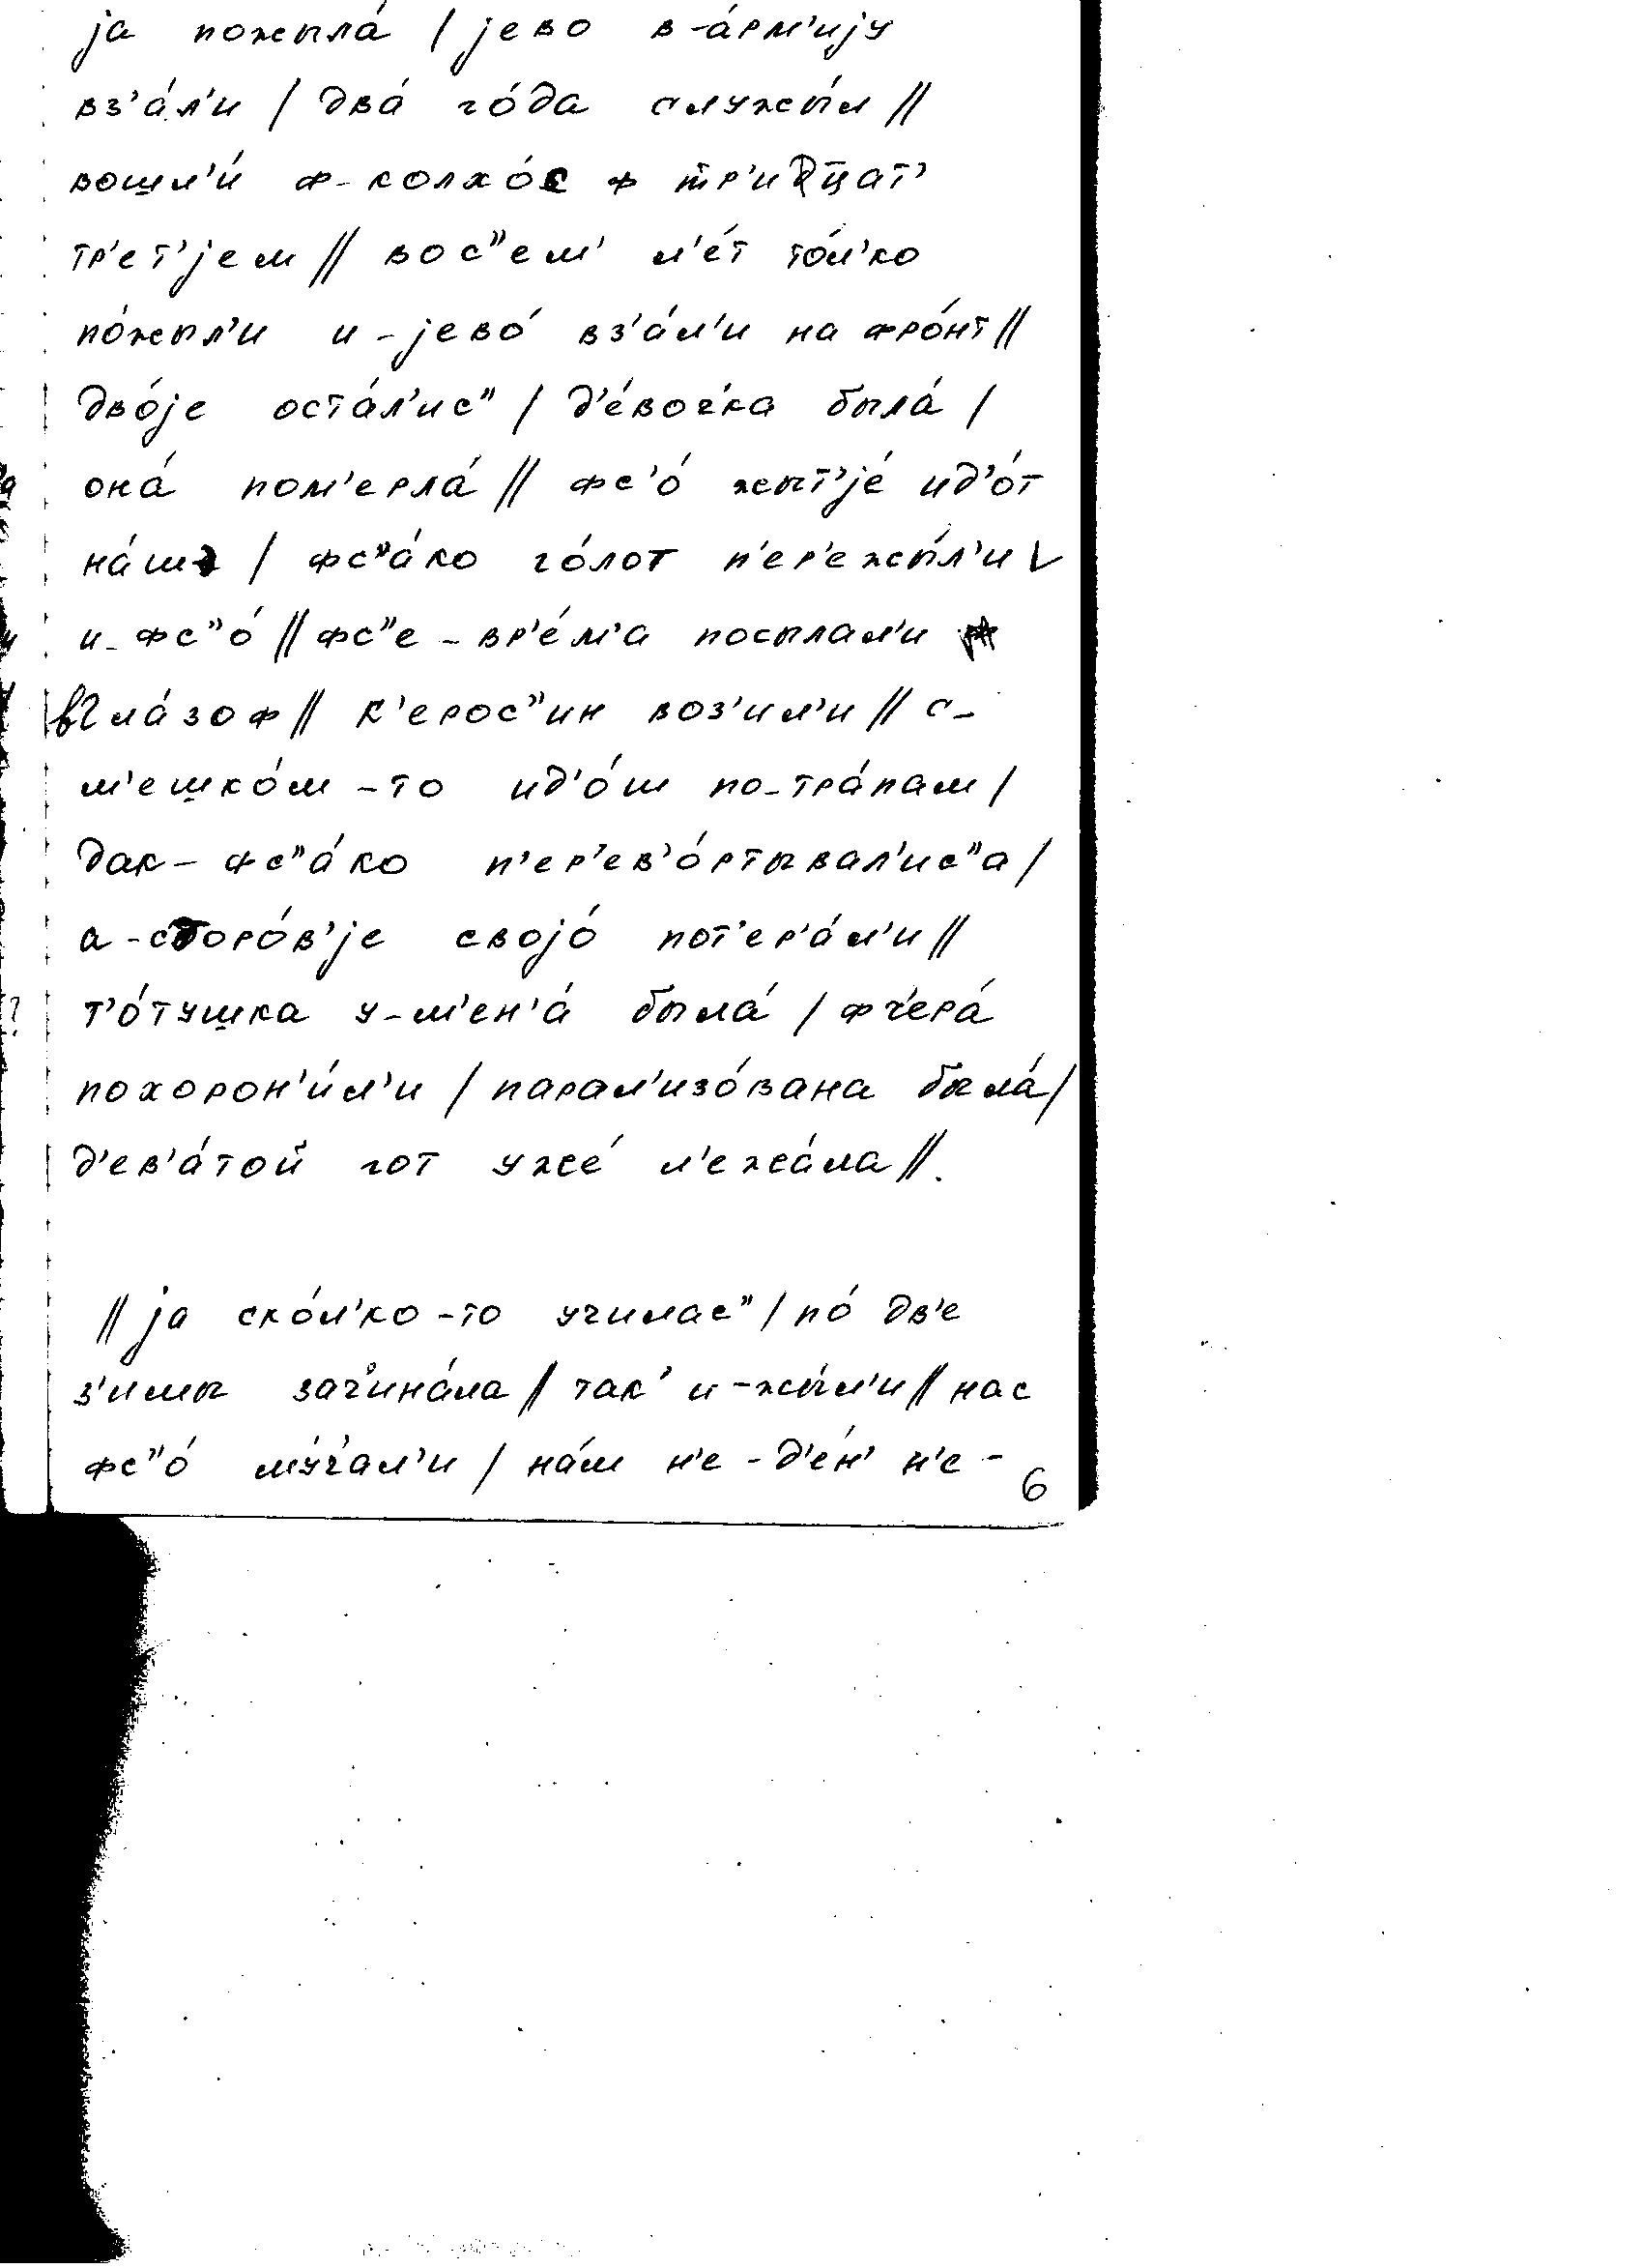 ја пожыла́ / јево в-а́рм'ију
вз'а́л'и / два́ го́да служы́л //
вошл'и́ ф-колхо́с ф тр'иццат'
тр'ет'јем // вос"ем' л'е́т то́л'ко
по́жыл'и и-јево́ вз'а́л'и на фро́нт //
дво́је оста́л'ис" / д'е́воч'ка была́ /
она́ пом'ерла́ // фс'о́ жыт'је́ ид'о́т
на́шэ / фс"а́ко го́лот п'ер'ежы́л'и V
и-фс"о́ // фс"е-вр'е́м'а посылал'и
в Гла́зоф // к'ерос"ин воз'ил'и // с-
м'ешко́м-то ид'о́ш по-тра́пам /
дак-фс"а́ко п'ер'ев'о́ртывал'ис"а /
а-сторо́в'је својо́ пот'ер'а́л'и //
т'о́тушка у-м'ен'а́ была́ / фч'ера́
похорон'и́л'и / парал'изо́вана была́ /
д'ев'а́той гот уже́ л'ежа́ла //.
// ја ско́л'ко-то училас" / по́ дв'е
з'имы зач'ина́ла // так' и-жы́л'и // нас
фс"о́ му́ч'ал'и / на́м н'е-д'е́н' н'е-
6